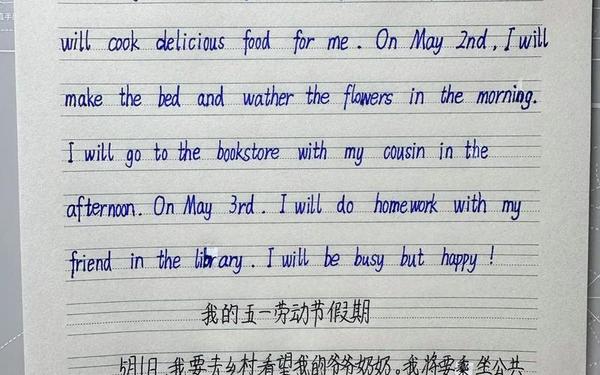 will cook delicious food for me. On May 2nd, I will
make the bed and wather the flowers in the morning.
I will go to the bookstore with my cousin in the
afternoon. On May 3rd. I will do homework with my
friend in the library. I will be busy but happy!
我的五一劳动节假期
5月1日,我要去乡村看望我的爷爷奶奶。我将要乘坐公共